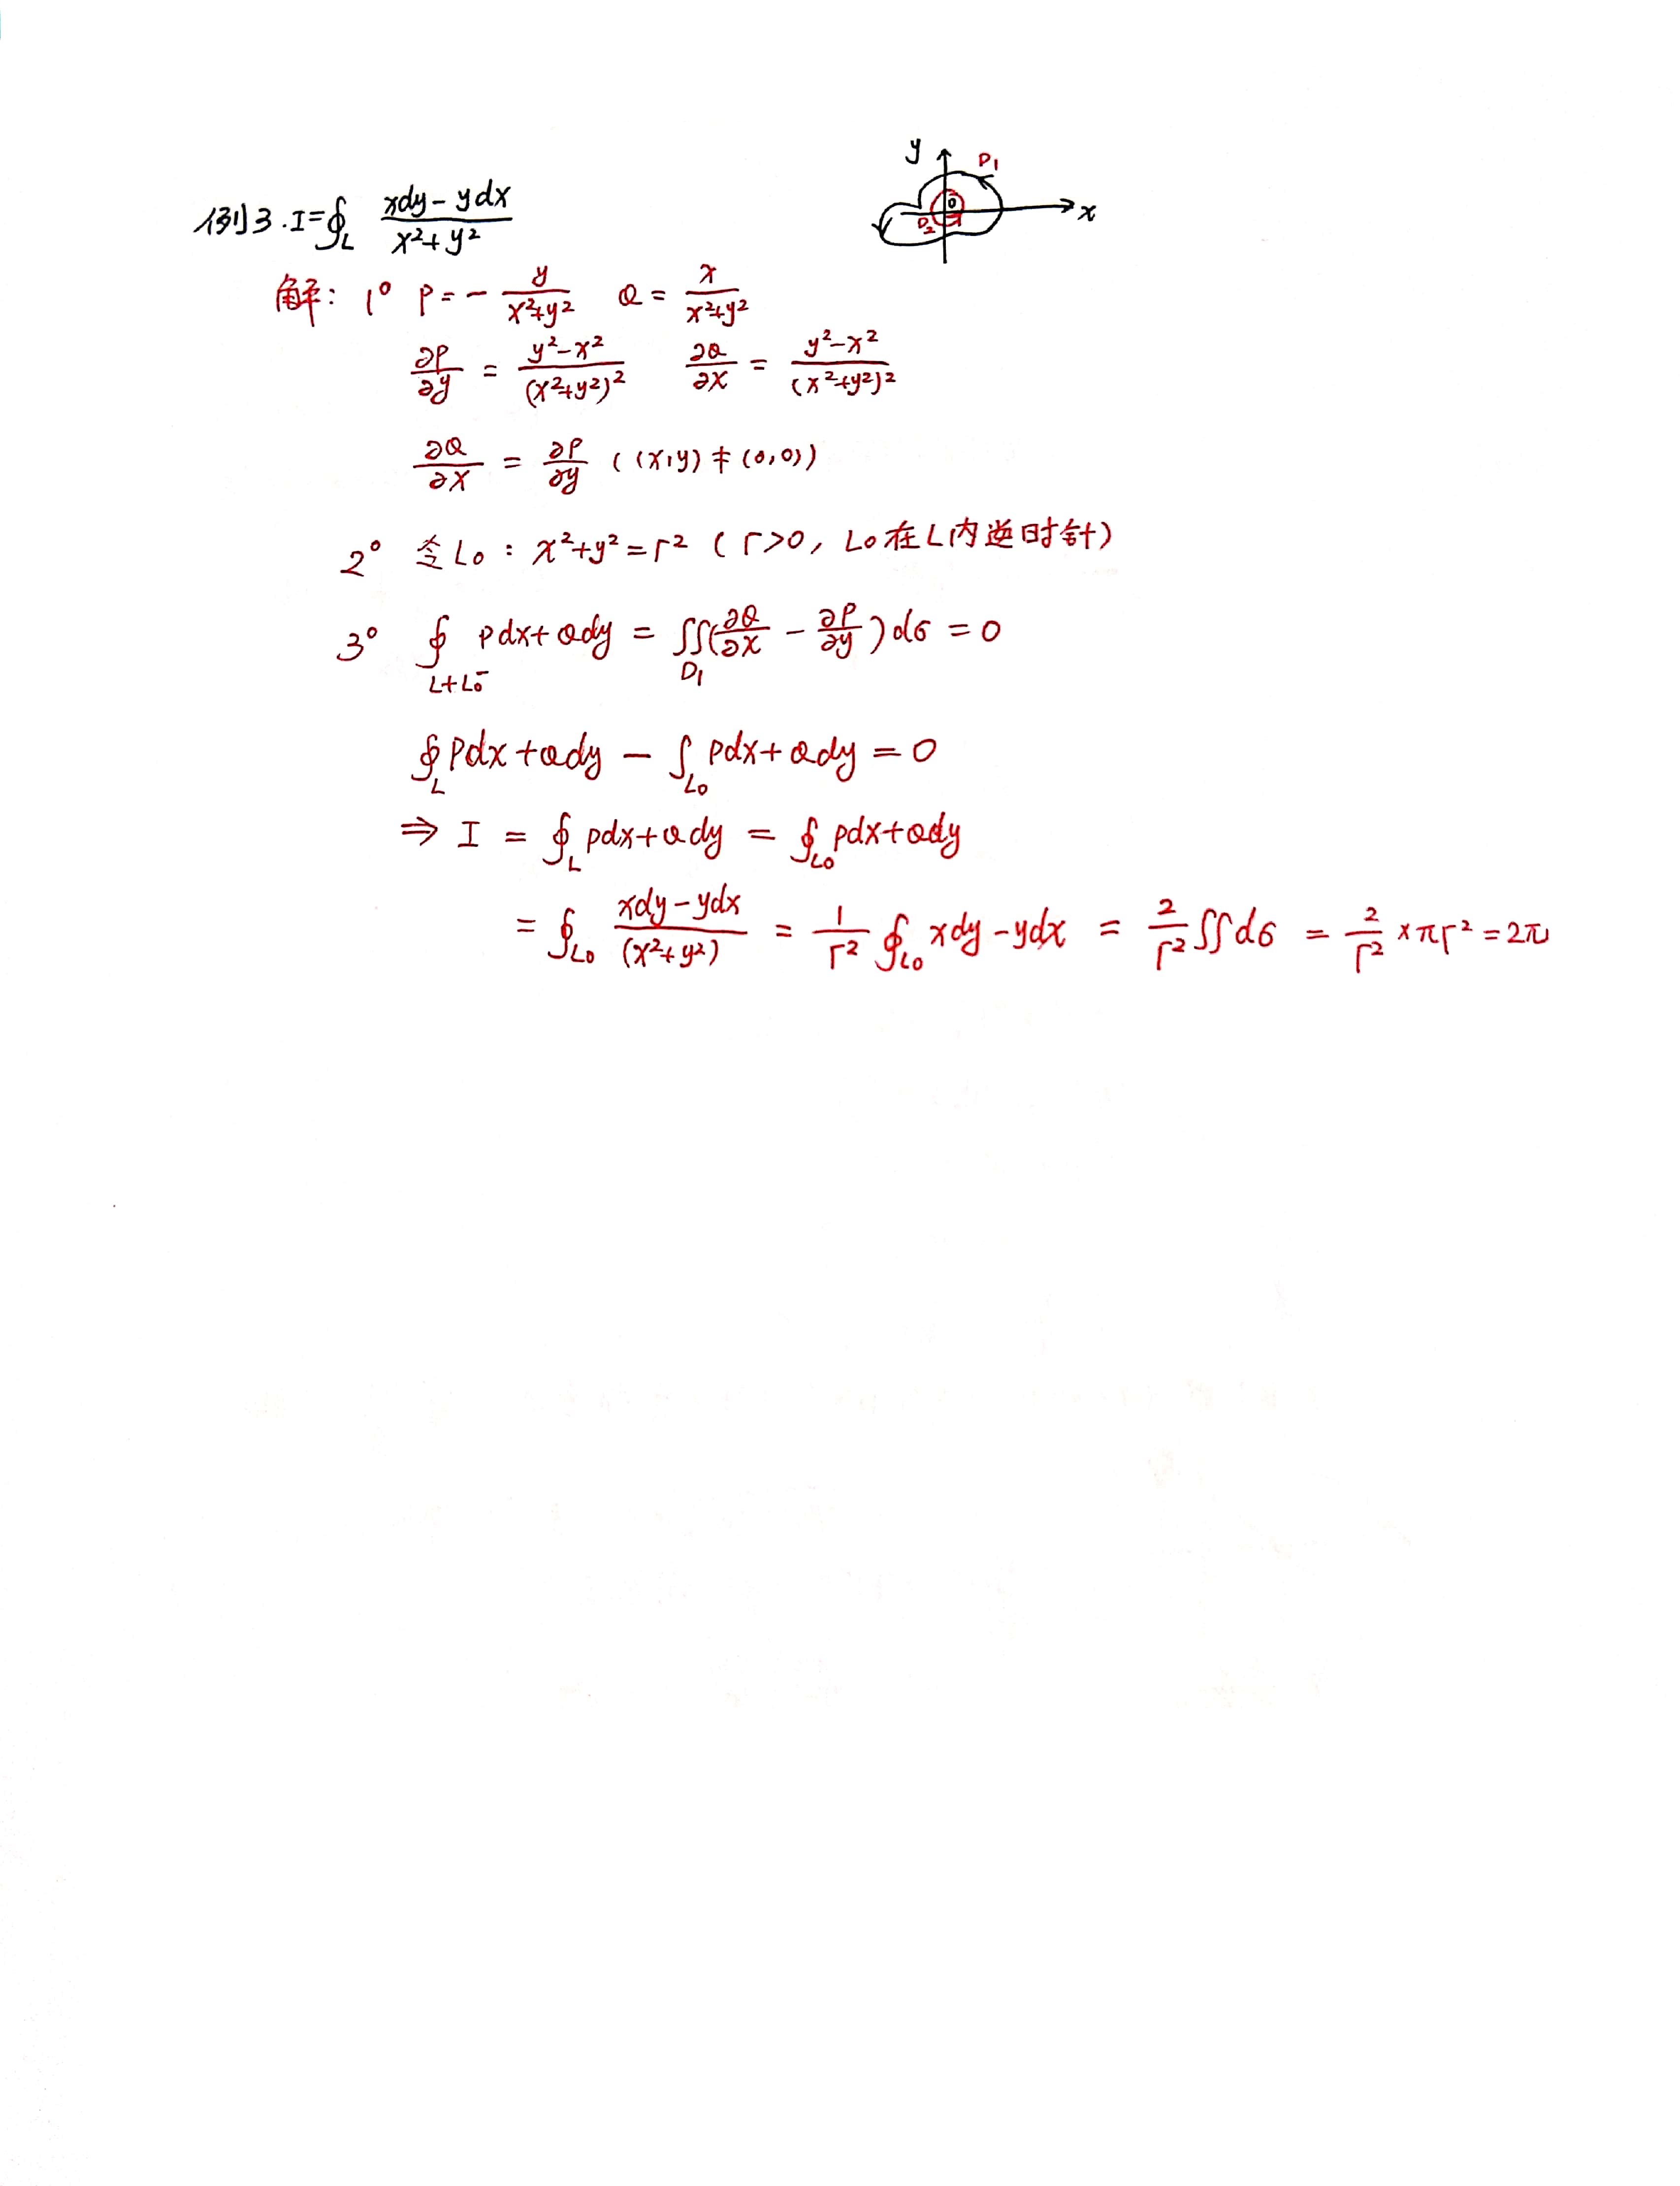 例3. I=∮_L (xdy-ydx)/(x²+y²)
y D₁ x 0 D₂
解: 1° P=-y/(x²+y²) Q=x/(x²+y²)
∂P/∂y = (y²-x²)/(x²+y²)² ∂Q/∂x = (y²-x²)/(x²+y²)²
∂Q/∂x = ∂P/∂y ((x,y)≠(0,0))
2° 令L₀: x²+y²=r² (r>0, L₀在L内逆时针)
3° ∮_{L+L₀⁻} Pdx+Qdy = ∬_{D₁}(∂Q/∂x - ∂P/∂y)dσ = 0
∮_L Pdx+Qdy - ∫_{L₀} Pdx+Qdy = 0
⇒ I = ∮_L Pdx+Qdy = ∮_{L₀} Pdx+Qdy
= ∮_{L₀} (xdy-ydx)/(x²+y²) = 1/r² ∮_{L₀} xdy-ydx = 2/r² ∬dσ = 2/r² × πr² = 2π